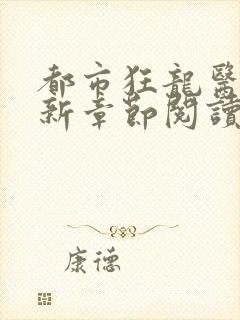 都市狂龍醫
新章節閱讀
康德